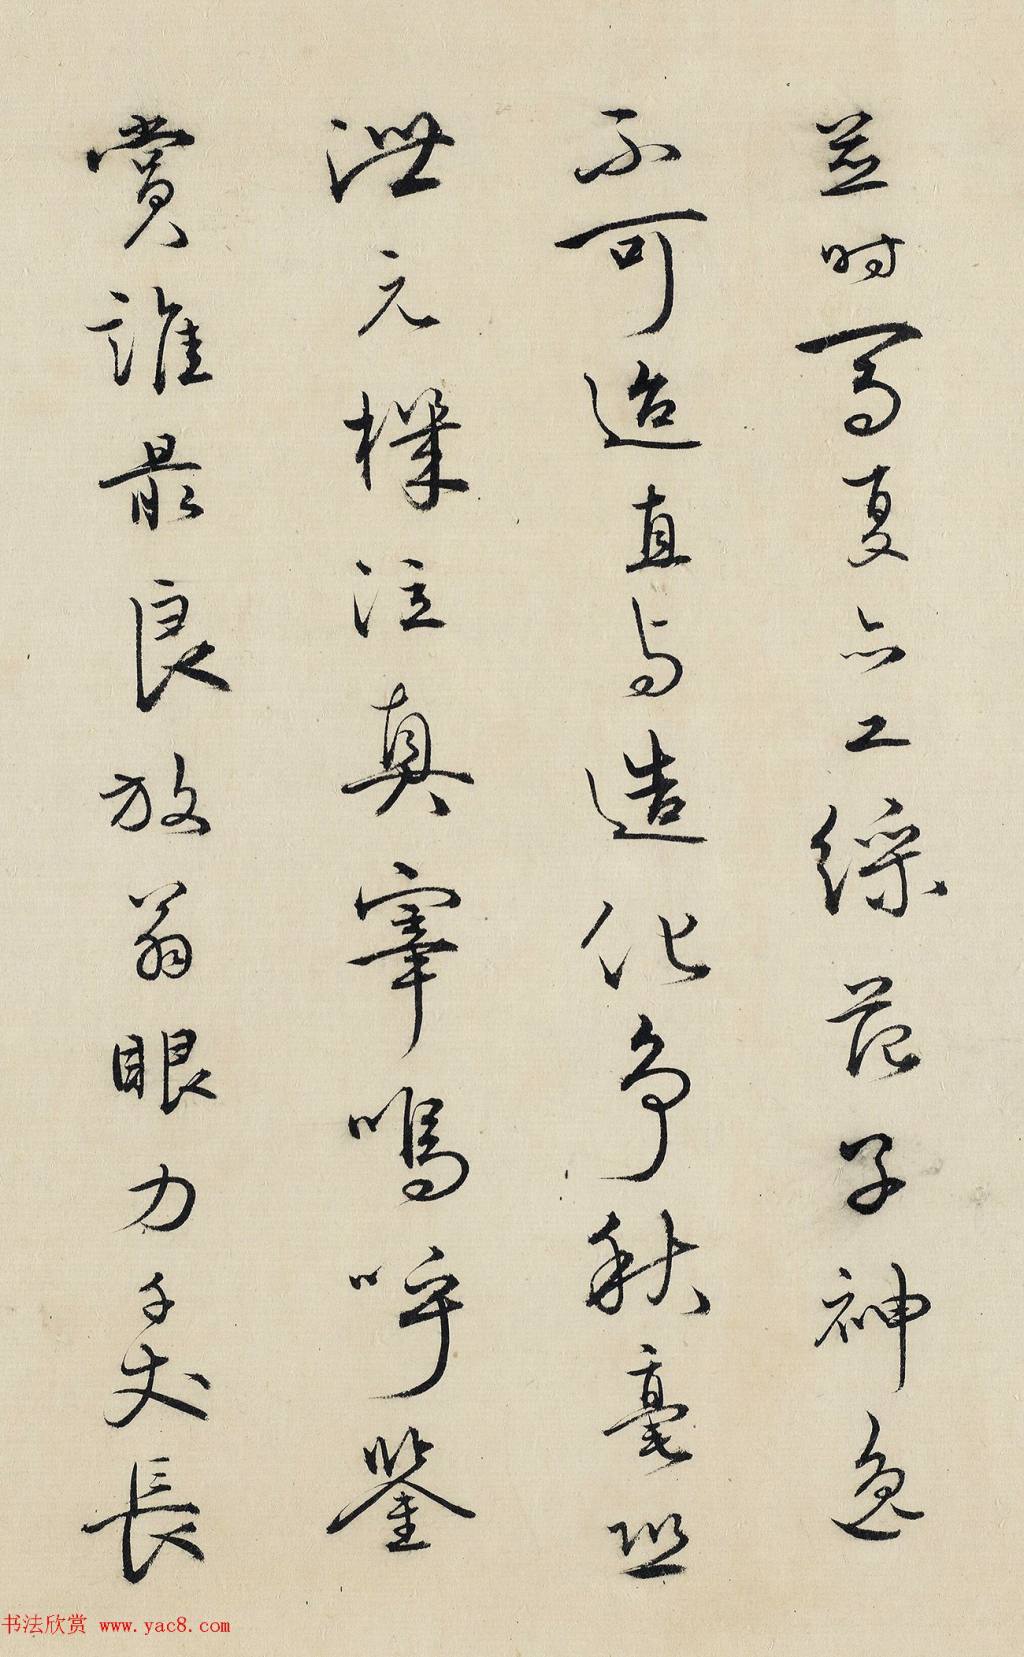 並时馬夏亦工綵范子神逸
不可追直与造化争秋毫㘴
泄元樸泣真宰嗚呼鑒
賞誰最良放翁眼力千丈長
书法欣赏 www.yac8.com